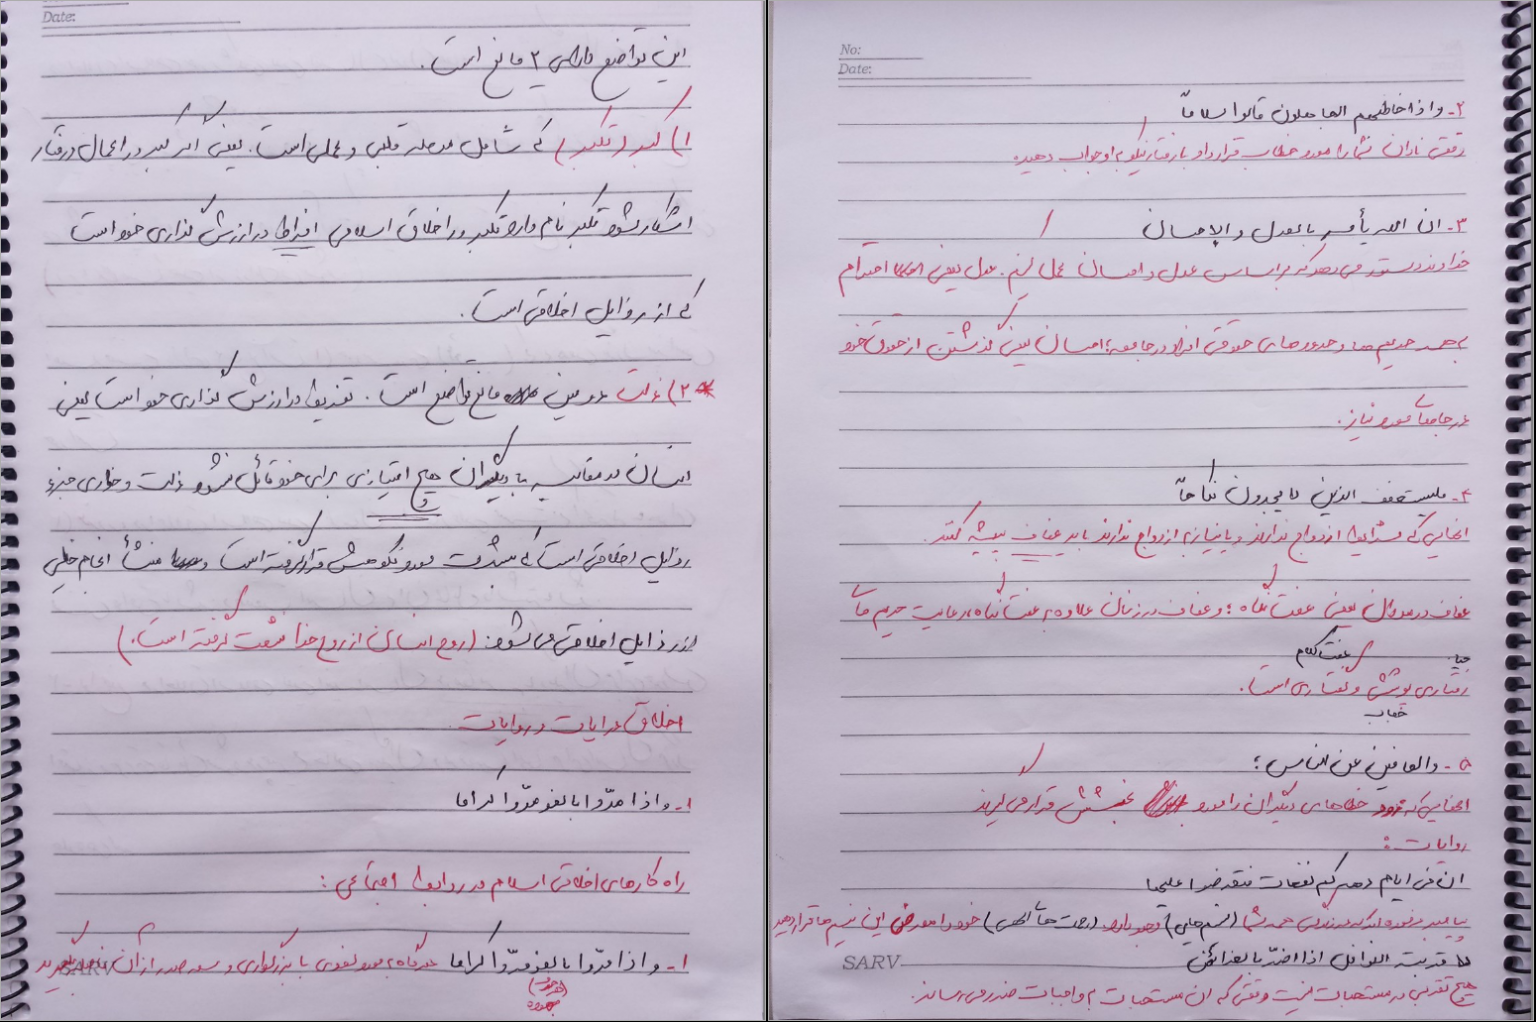 Date:
این تواضع دارای ۲ مانع است.
۱) کبر (تکبر) که شامل مرحله قلبی و عملی است. یعنی اگر کبر در اعمال و رفتار
اشکار شود تکبر نام دارد تکبر در اخلاق اسلامی افراط در ارزش گذاری خود است
که از رذایل اخلاقی است.
۲) ذلت دومین مانع تواضع است. تفریط در ارزش گذاری خود است یعنی
انسان در مقایسه با دیگران هیچ امتیازی برای خود قائل نشود ذلت و خواری جزء
رذایل اخلاقی است که بشدت مورد نکوهش قرار گرفته است و منشأ انجام خیلی
از رذایل اخلاقی می شود. (روح انسان از روح خدا نشئت گرفته است.)
اخلاق در ایات و روایات
۱- و اذا مرّوا بالغو مرّوا کراما
راه کارهای اخلاقی اسلام در روابط اجتماعی:
۱- و اذا مرّوا بالغو مرّوا کراما هرگاه مورد لغوی با بزرگواری و سعه صدر از آن
بیهوده
SARV
No:
Date:
۲- و اذا خاطبهم الجاهلون قالوا سلاماً
وقتی نادان شما را مورد خطاب قرار داد با رفتار نیکو به او جواب دهید.
۳- ان الله یأمر بالعدل و الاحسان
خداوند دستور می دهد که بر اساس عدل و احسان عمل کنیم. عدل یعنی احترام
به همه حریم ها و حدودهای حقوقی افراد در جامعه؛ احسان یعنی گذشتن از حقوق خود
در جاهای مورد نیاز.
۴- ولیستعفف الذین لا یجدون نکاحاً
انهایی که شرایط ازدواج ندارند و یا نیاز به ازدواج ندارند باید عفاف پیشه کنند.
عفاف در مردان یعنی عفت نگاه؛ و عفاف در زنان علاوه بر عفت نگاه رعایت حریم های
عفت کلام
حیا
رفتاری پوشش و گفتاری است.
حجاب
۵- والعافین عن الناس؛
انهایی که خطاهای دیگران را مورد بخشش قرار می گیرند
روایات:
ان فی ایام دهرکم نفحات فتعرضوا علیها
پیامبر فرموده اند که در زندگی همه شما (نسیم هایی) وجود دارد (رحمت های الهی) خود را در معرض این نسیم ها قرار دهید
لا قربة النوافل اذا اضرّ بالفرائض
هیچ تقربی در مستحبات نیست وقتی که ان مستحبات به واجبات ضرر می رساند.
SARV